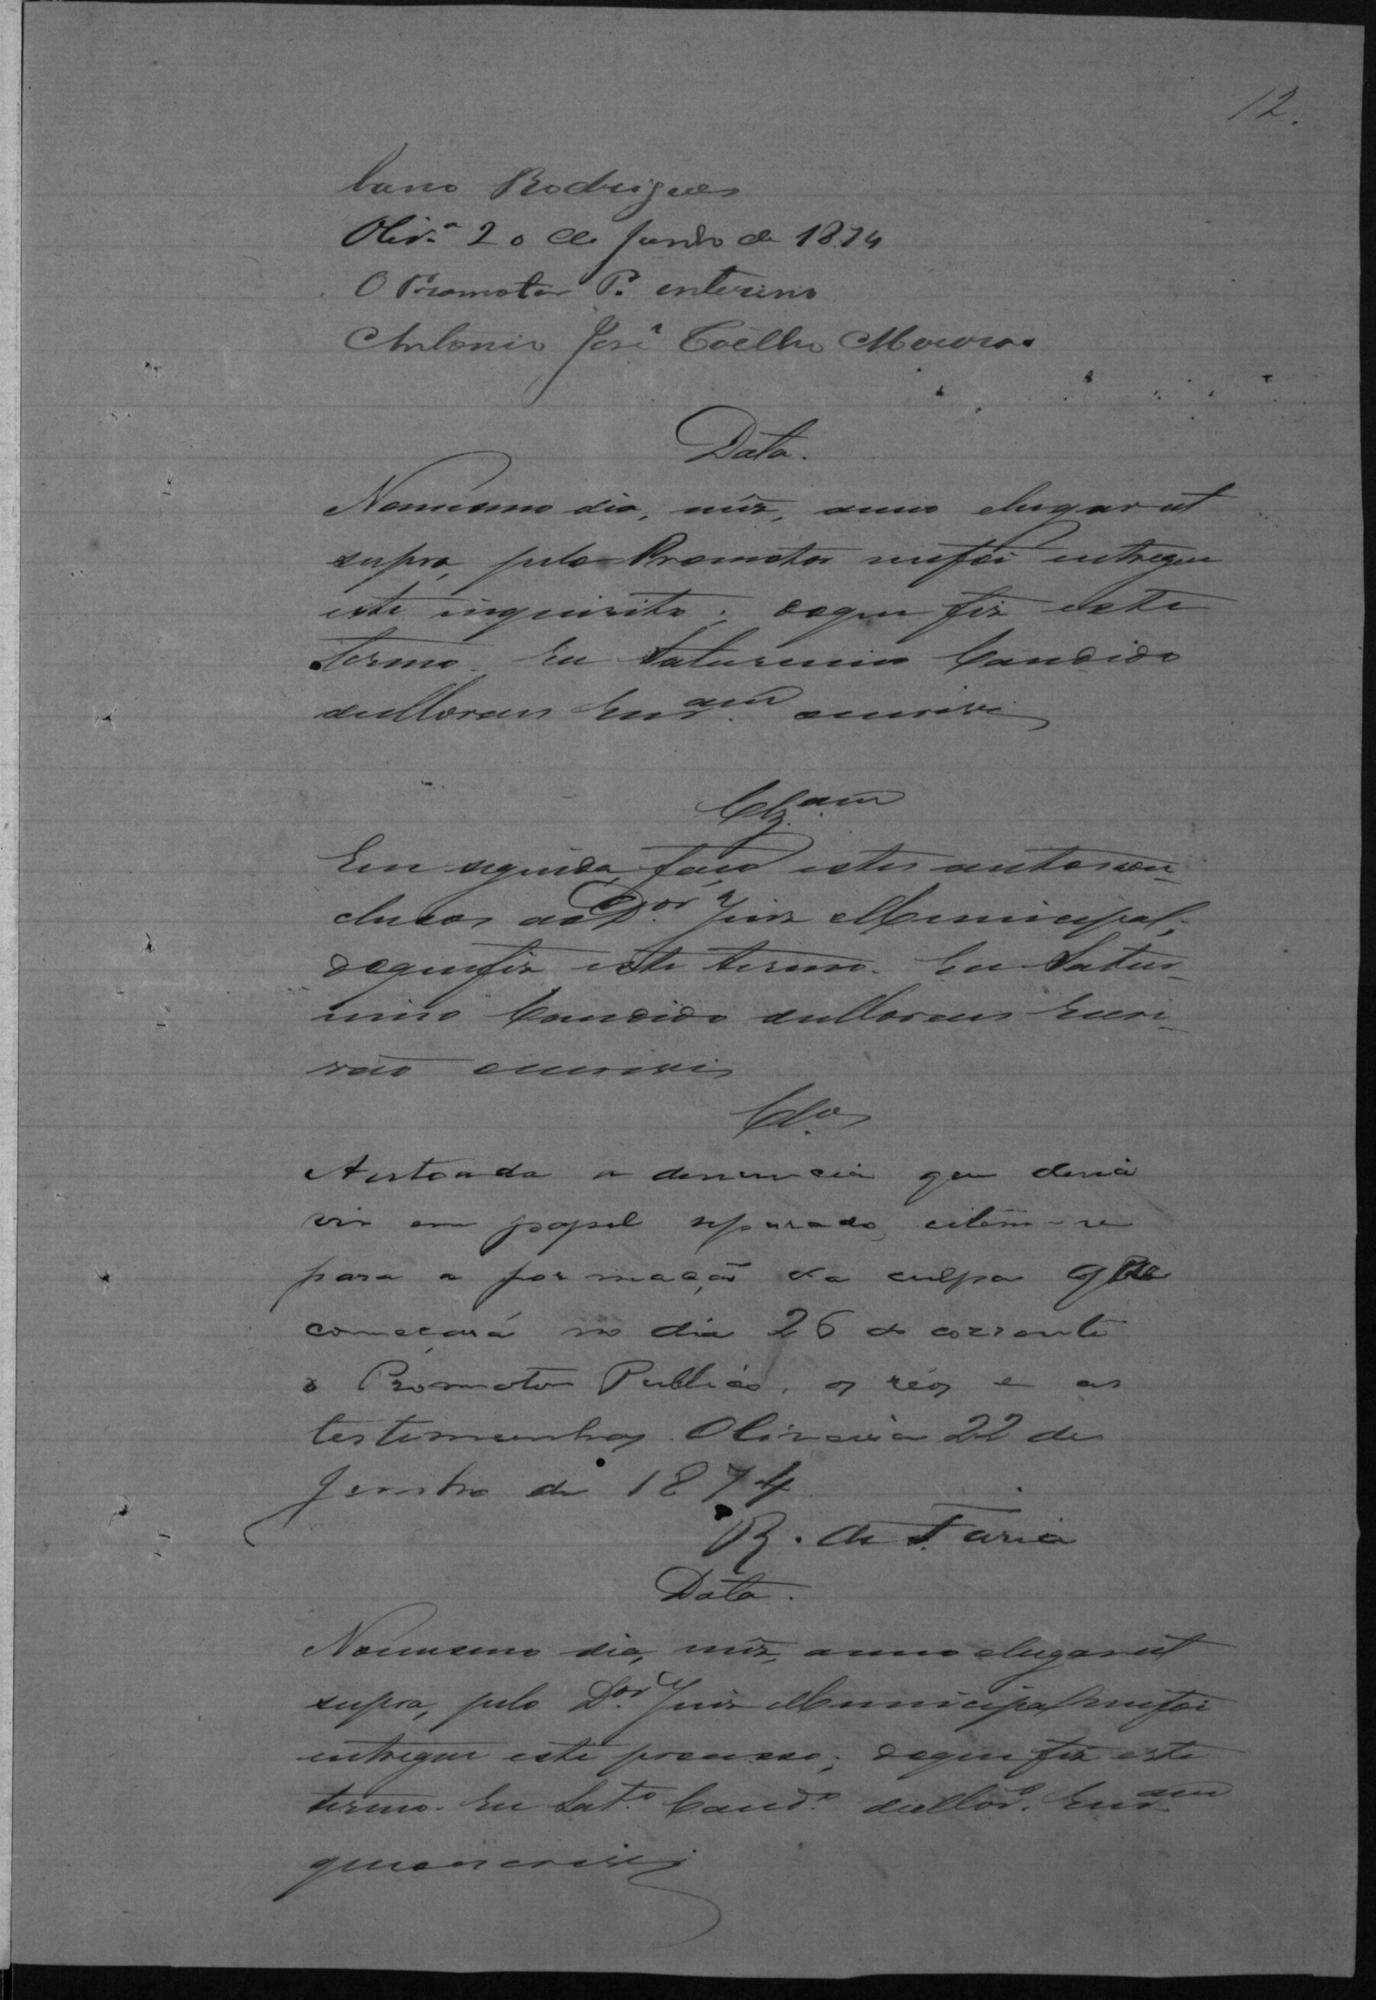 12.
bano Rodrigues
Olivr.ª 20 de Junho de 1874
O Promotor P. interino
Antonio José Coelho Moura
Data.
Nomesmo dia, mêz, anno elugar ut
supra, pelo Promotor mefoi entregue
este inquerito; doque fiz este
termo. Eu Saturnino Candido
deMoraes Escr.am escrevi
Clz.am
Em seguida faço estes autos con-
clusos ao D.or Juiz Municipal;
doquefiz este termo. Eu Satur-
nino Candido deMoraes Escri-
vão escrevi
Cl.os
Autoada a denuncia que devia
vir em papel separado, citem-se
para a formação da culpa que
começará no dia 26 do corrente
o Promotor Publico, os réos e as
testemunhas. Oliveira 22 de
Junho de 1874
R. de Faria
Data.
Nomesmo dia, mêz, anno elugar ut
supra, pelo D.or Juiz Municipal mefoi
entregue este processo; doque fiz este
termo. Eu Sat.º Cand.º deMor.s Escr.am
queoescrevi